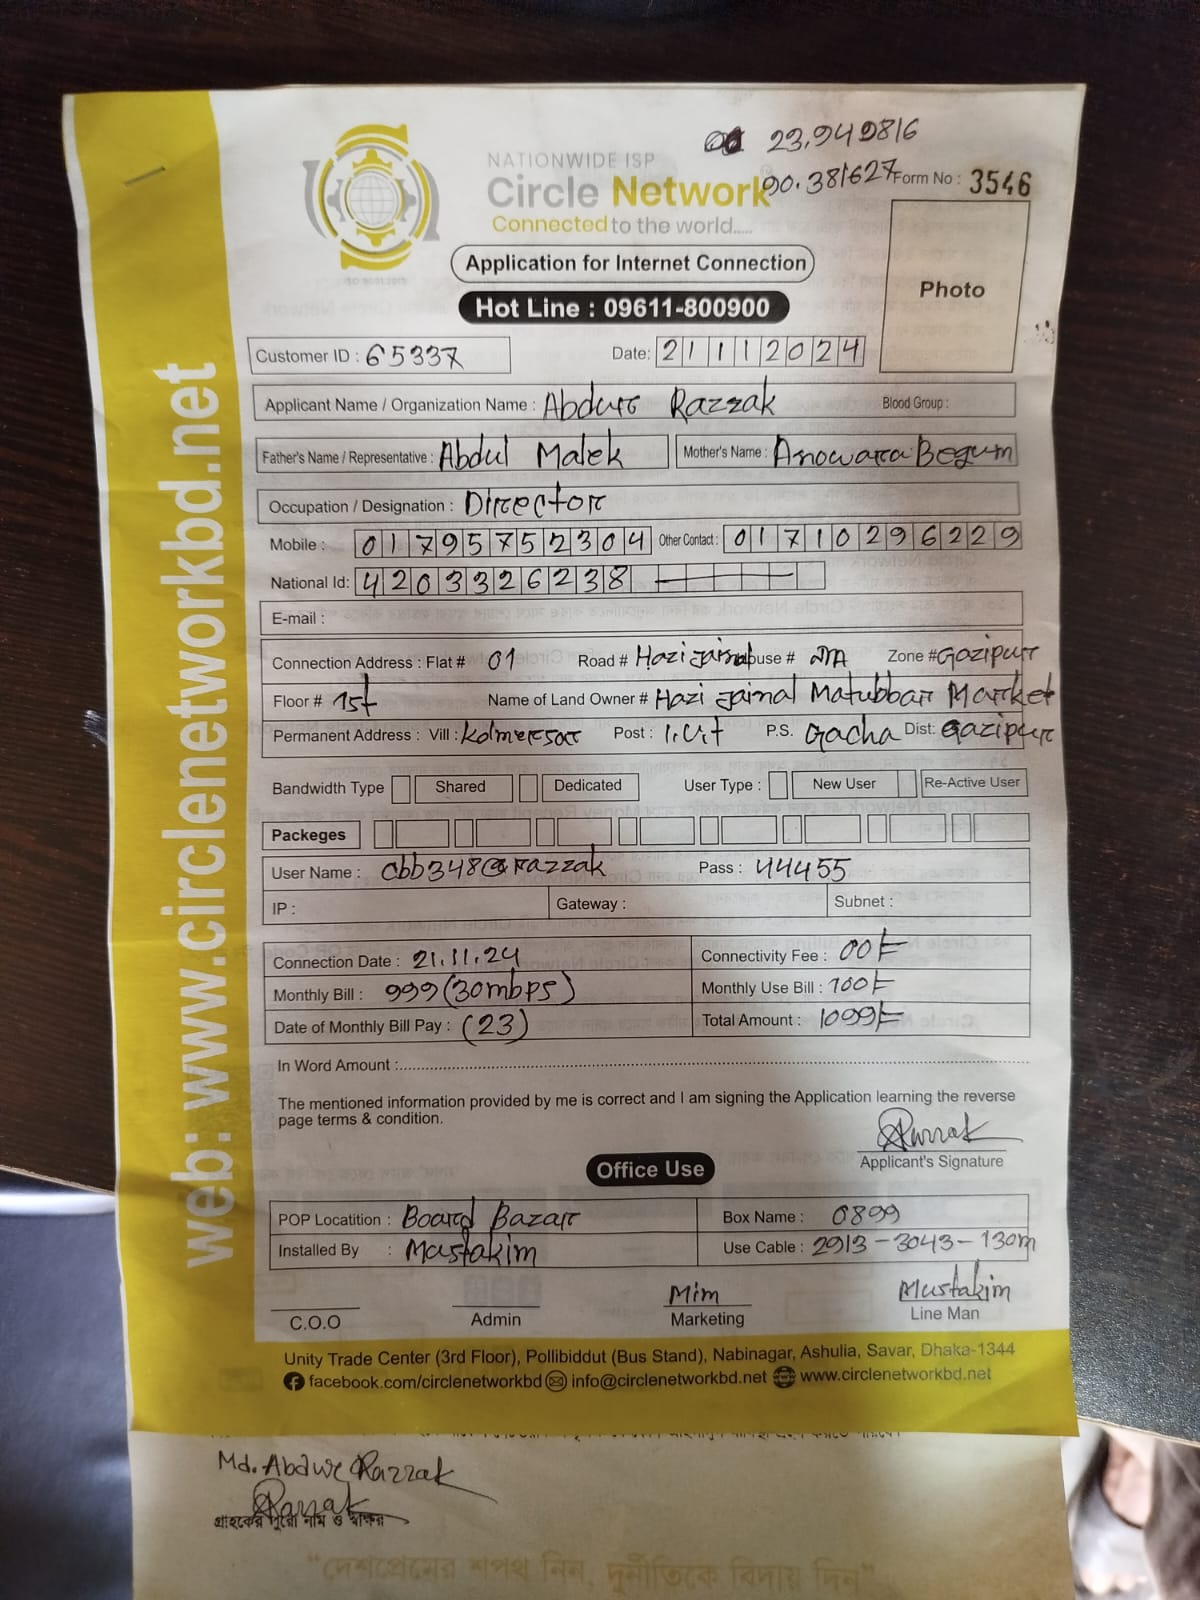 23.949816
90.381627
NATIONWIDE ISP
Circle Network
Connected to the world.....
Form No : 3546
Application for Internet Connection
Hot Line : 09611-800900
Photo
Customer ID : 65337 Date: 21112024
Applicant Name / Organization Name : Abdur Razzak Blood Group :
Father's Name / Representative : Abdul Malek Mother's Name : Anowara Begum
Occupation / Designation : Director
Mobile : 01795752304 Other Contact : 01710296229
National Id: 4203326238
E-mail :
Connection Address : Flat # 01 Road # Hazi jainal House # N/A Zone # Gazipur
Floor # 1st Name of Land Owner # Hazi jainal Matubbar Market
Permanent Address : Vill : Kolmersor Post : P.S. Gacha Dist: Gazipur
Bandwidth Type Shared Dedicated User Type : New User Re-Active User
Packeges
User Name : cbb348@razzak Pass : 44455
IP : Gateway : Subnet :
Connection Date : 21.11.24 Connectivity Fee : 00
Monthly Bill : 999 (30mbps) Monthly Use Bill : 100
Date of Monthly Bill Pay : (23) Total Amount : 1099
In Word Amount :
The mentioned information provided by me is correct and I am signing the Application learning the reverse
page terms & condition.
Razzak
Applicant's Signature
Office Use
POP Locatition : Board Bazar Box Name : 0899
Installed By : Mustakim Use Cable : 2913-3043-130m
Mim Mustakim
C.O.O Admin Marketing Line Man
Unity Trade Center (3rd Floor), Pollibiddut (Bus Stand), Nabinagar, Ashulia, Savar, Dhaka-1344
facebook.com/circlenetworkbd info@circlenetworkbd.net www.circlenetworkbd.net
web: www.circlenetworkbd.net
Md. Abdur Razzak
Razzak
গ্রাহকের পুরো নাম ও স্বাক্ষর
“দেশপ্রেমের শপথ নিন, দুর্নীতিকে বিদায় দিন”